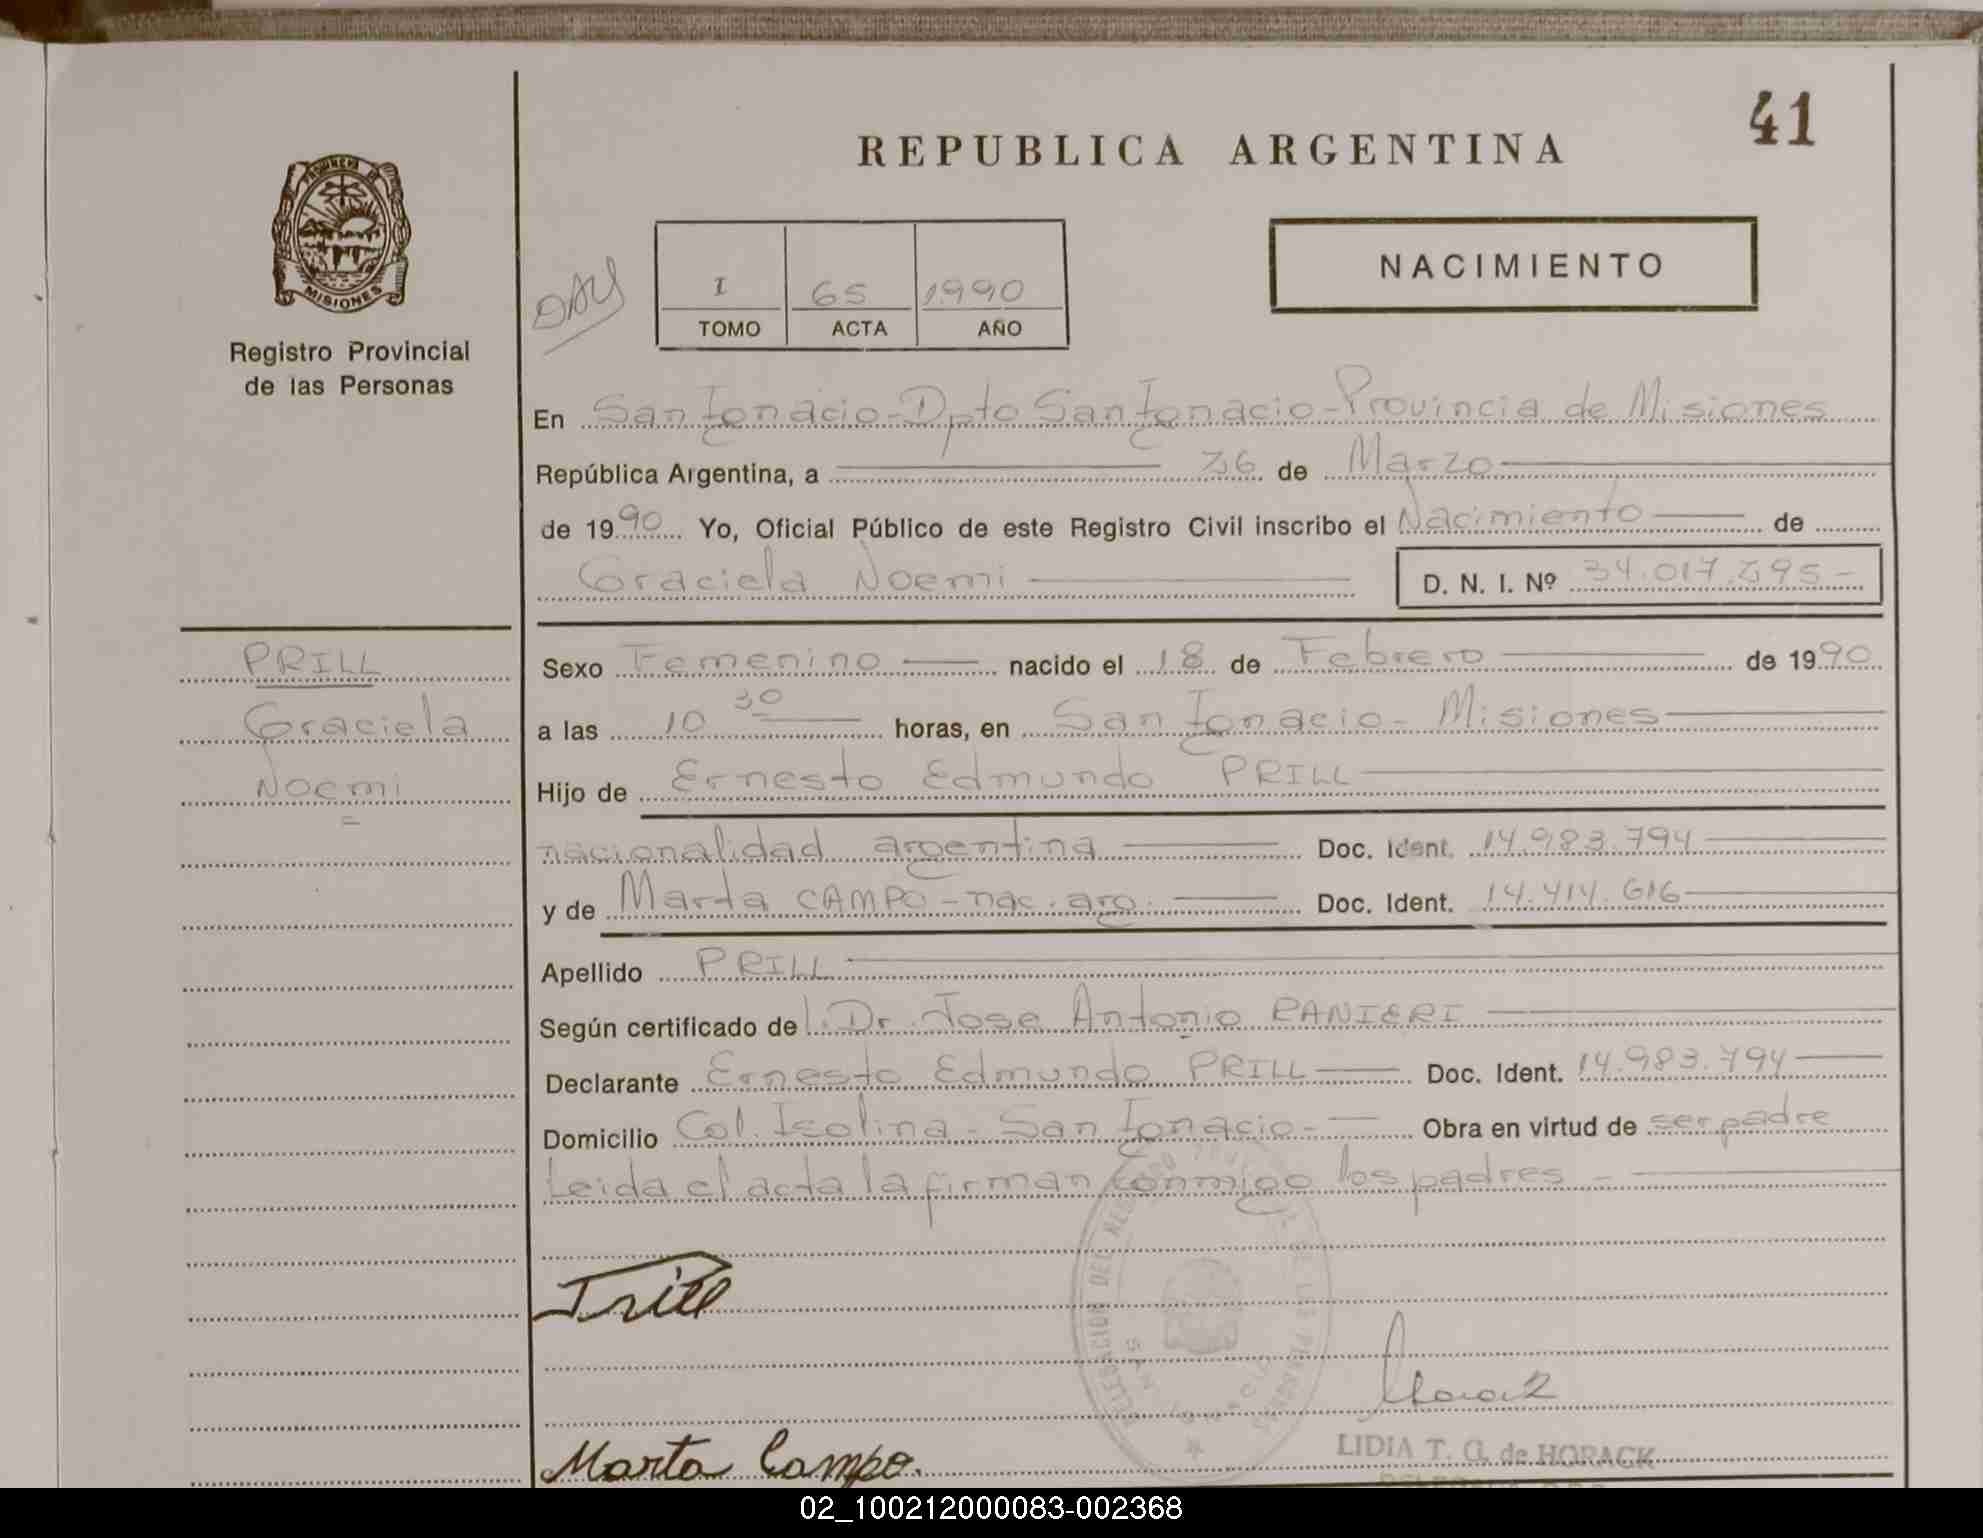 41
REPUBLICA ARGENTINA
PROVINCIA DE
MISIONES
Registro Provincial
de las Personas
NACIMIENTO
I 65 1990
TOMO ACTA AÑO
En San Ignacio-Dpto San Ignacio-Provincia de Misiones
República Argentina, a de Marzo
de 1990 Yo, Oficial Público de este Registro Civil inscribo el Nacimiento de
Graciela Noemi D. N. I. Nº
PRILL
Graciela
Noemi
Sexo Femenino nacido el 18 de Febrero de 1990
a las 10 30 horas, en San Ignacio - Misiones
Hijo de Ernesto Edmundo PRILL
nacionalidad argentina Doc. Ident. 14.983.794
y de Marta CAMPO - nac. arg. Doc. Ident. 14.414.616
Apellido PRILL
Según certificado de Dr. Jose Antonio RANIERI
Declarante Ernesto Edmundo PRILL Doc. Ident. 14.983.794
Domicilio Col. Isolina - San Ignacio - Obra en virtud de ser padre
Leida el acta la firman conmigo los padres -
DELEGACION DEL REGISTRO DE LAS PERSONAS
SAN IGNACIO
Prill
Horack
Marta Campo.
LIDIA T. G. de HORACK
02_100212000083-002368